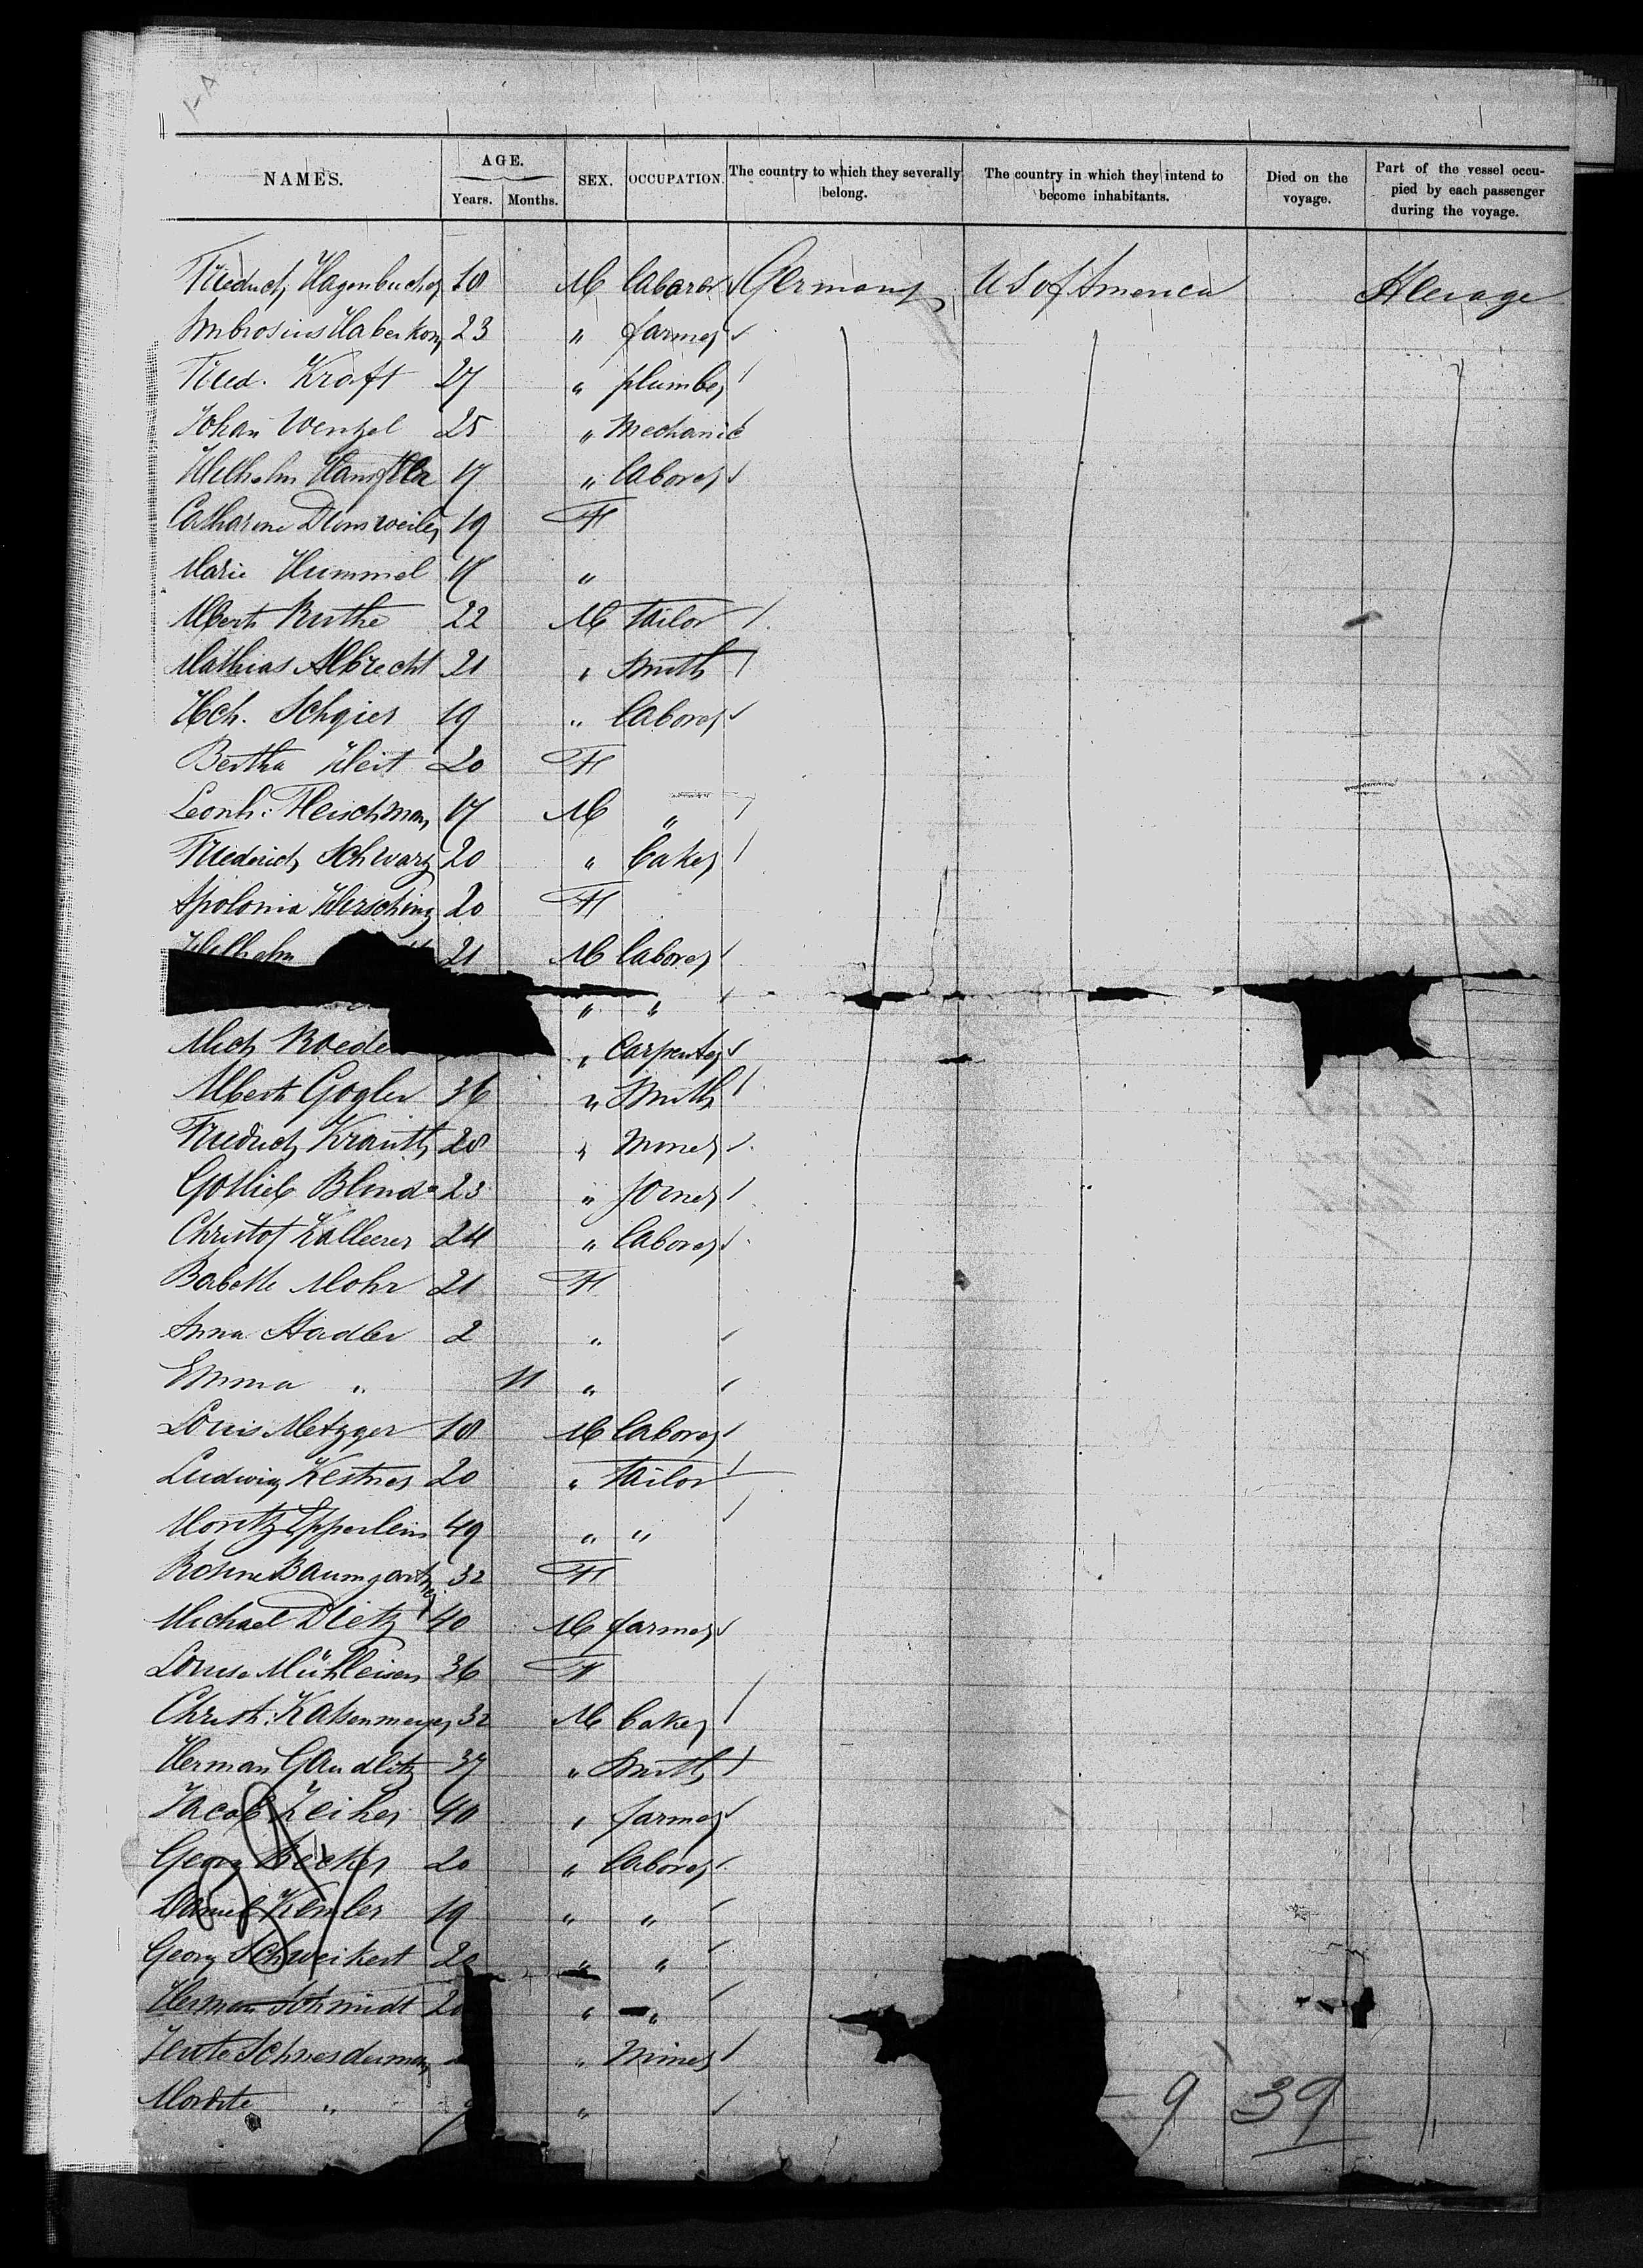 NAMES. AGE. Years. Months. SEX. OCCUPATION. The country to which they severally belong. The country in which they intend to become inhabitants. Died on the voyage. Part of the vessel occupied by each passenger during the voyage.
Friedrich Hagenbucher 18 M laborer Germany U S of America Sterage
Ambrosius Haberkorn 23 " farmer
Fried. Kraft 27 " plumber
Johan Wenzel 25 " Mechanic
Wilhelm 17 " laborer
Catharine 19 F
Marie Hummel "
Albert Ruthe 22 M tailor
Mathias Albrecht 21 " Smith
Hch. Schgier 19 " laborer
Bertha Weit 20 F
Leonh: Fleischman 17 M "
Friederich Schwarz 20 " baker
Apolonia Hirsching 20 F
Wilhelm 21 M laborer
" "
Mich Roeder " Carpenter
Albert Gogler 36 " Smith
Friedrich Krauth 28 " miner
Gottlieb Blinde 23 " joiner
Christof 24 " laborer
Babette Mohr 21 F
Anna Stadler 2 "
Emma " 11 "
Louis Metzger 18 M laborer
Ludwig Kestner 20 " tailor
Moritz Epperlein 49 " "
Rosine Baumgartner 32 F
Michael Dietz 40 M farmer
Louise Mühleisen 36 F
Christ: Katsenmeyer 32 M baker
Herman Gaudlitz 37 " Smith
Jacob Zeiher 40 " farmer
Georg Becker 20 " laborer
Daniel Kemler 19 " "
Georg Schweikert 20 " "
Herman Schmidt 20 " "
Schneiderman " Miner
" 9 "
9 39